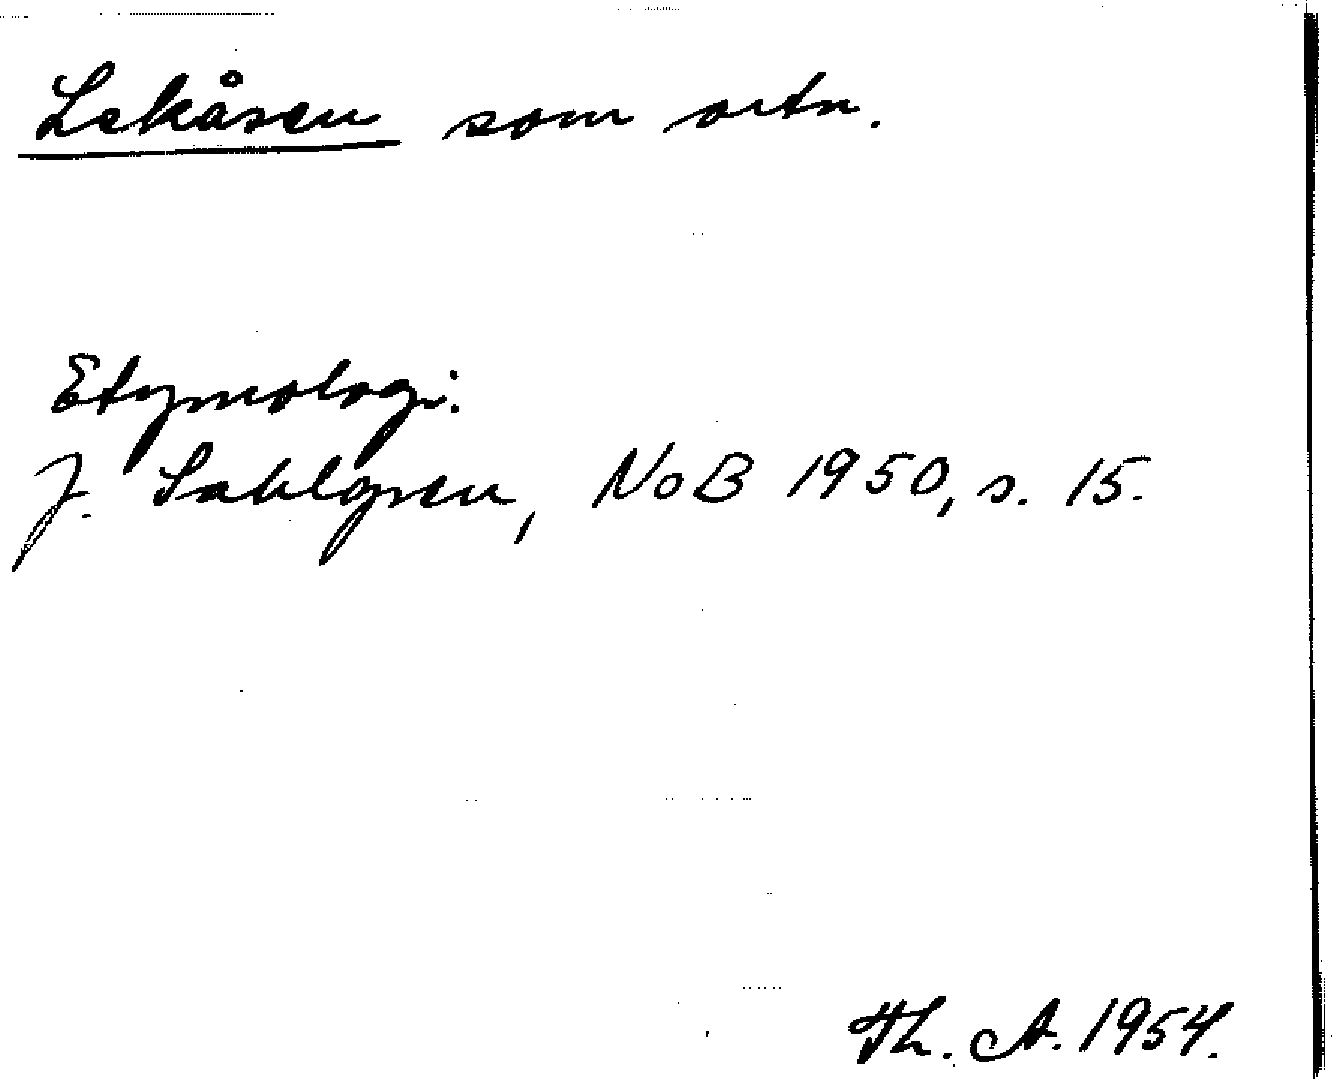 Lekåsen som ortn.
Etymologi:
J. Sahlgren, NoB 1950, s. 15.
Th. A. 1954.